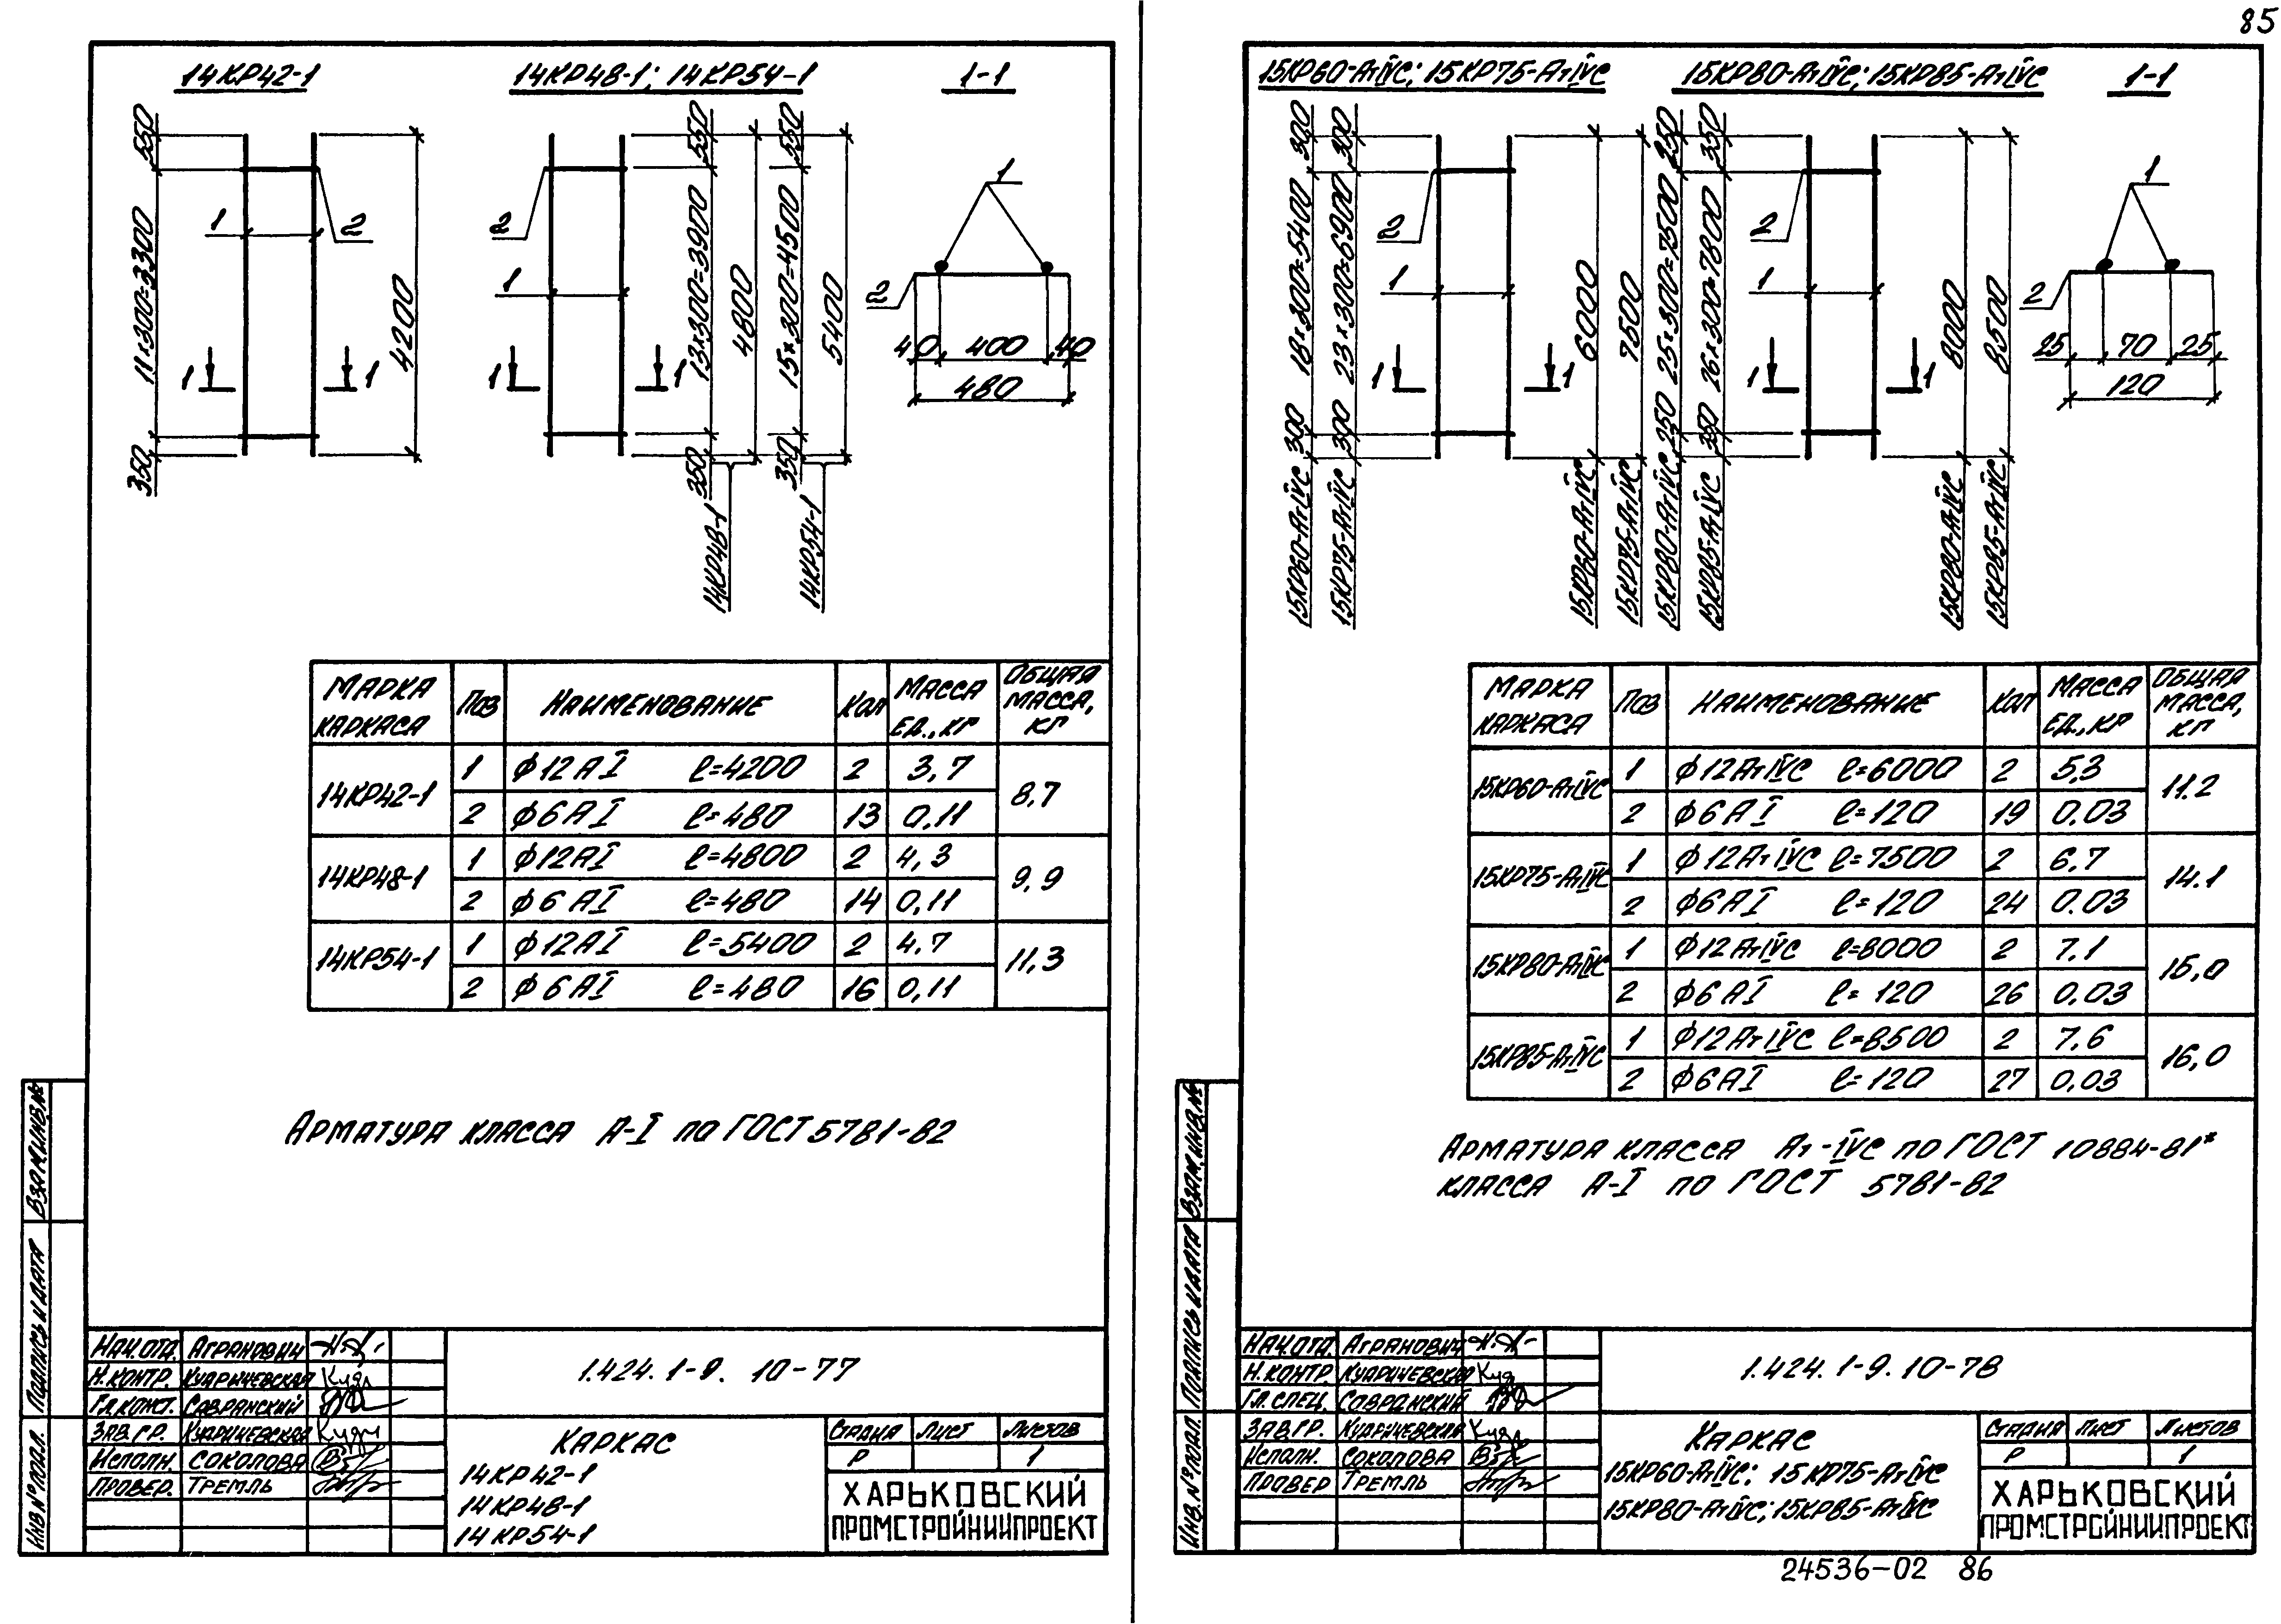 85
14КР42-1
14КР48-1; 14КР54-1
1-1
550
11×300=3300
350
4200
1
2
1
1
2
1
1
1
550
13×300=3900
350
4800
550
15×300=4500
350
5400
14КР48-1
14КР54-1
1
2
40
400
40
480
МАРКА КАРКАСА
ПОЗ
НАИМЕНОВАНИЕ
КОЛ
МАССА ЕД., КГ
ОБЩАЯ МАССА, КГ
14КР42-1 1 ϕ12АI ℓ=4200 2 3,7 8,7
2 ϕ6АI ℓ=480 13 0,11
14КР48-1 1 ϕ12АI ℓ=4800 2 4,3 9,9
2 ϕ6АI ℓ=480 14 0,11
14КР54-1 1 ϕ12АI ℓ=5400 2 4,7 11,3
2 ϕ6АI ℓ=480 16 0,11
АРМАТУРА КЛАССА А-I ПО ГОСТ 5781-82
ВЗАМ.ИНВ.№
ПОДПИСЬ И ДАТА
ИНВ.№ ПОДЛ.
НАЧ.ОТД. АГРАНОВИЧ
Н.КОНТР. КУДРИЧЕВСКАЯ
ГЛ.КОНСТ. САВРАНСКИЙ
ЗАВ.ГР. КУДРИЧЕВСКАЯ
ИСПОЛН. СОКОЛОВА
ПРОВЕР. ТРЕМЛЬ
1.424.1-9.10-77
КАРКАС
14КР42-1
14КР48-1
14КР54-1
СТАДИЯ ЛИСТ ЛИСТОВ
Р 1
ХАРЬКОВСКИЙ
ПРОМСТРОЙНИИПРОЕКТ
15КР60-АтIVС; 15КР75-АтIVС
15КР80-АтIVС; 15КР85-АтIVС
1-1
300
18×300=5400
300
15КР60-АтIVС
300
23×300=6900
300
15КР75-АтIVС
2
1
1
1
6000
15КР60-АтIVС
7500
15КР75-АтIVС
250
25×300=7500
250
15КР80-АтIVС
350
26×300=7800
350
15КР85-АтIVС
2
1
1
1
8000
15КР80-АтIVС
8500
15КР85-АтIVС
1
2
25
70
25
120
МАРКА КАРКАСА
ПОЗ
НАИМЕНОВАНИЕ
КОЛ
МАССА ЕД., КГ
ОБЩАЯ МАССА, КГ
15КР60-АтIVС 1 ϕ12АтIVС ℓ=6000 2 5,3 11.2
2 ϕ6АI ℓ=120 19 0.03
15КР75-АтIVС 1 ϕ12АтIVС ℓ=7500 2 6.7 14.1
2 ϕ6АI ℓ=120 24 0.03
15КР80-АтIVС 1 ϕ12АтIVС ℓ=8000 2 7.1 15,0
2 ϕ6АI ℓ=120 26 0.03
15КР85-АтIVС 1 ϕ12АтIVС ℓ=8500 2 7.6 16,0
2 ϕ6АI ℓ=120 27 0.03
АРМАТУРА КЛАССА Ат-IVС ПО ГОСТ 10884-81*
КЛАССА А-I ПО ГОСТ 5781-82
ВЗАМ.ИНВ.№
ПОДПИСЬ И ДАТА
ИНВ.№ ПОДЛ.
НАЧ.ОТД. АГРАНОВИЧ
Н.КОНТР. КУДРИЧЕВСКАЯ
ГЛ.СПЕЦ. САВРАНСКИЙ
ЗАВ.ГР. КУДРИЧЕВСКАЯ
ИСПОЛН. СОКОЛОВА
ПРОВЕР ТРЕМЛЬ
1.424.1-9.10-78
КАРКАС
15КР60-АтIVС; 15КР75-АтIVС
15КР80-АтIVС; 15КР85-АтIVС
СТАДИЯ ЛИСТ ЛИСТОВ
Р 1
ХАРЬКОВСКИЙ
ПРОМСТРОЙНИИПРОЕКТ
24536-02 86